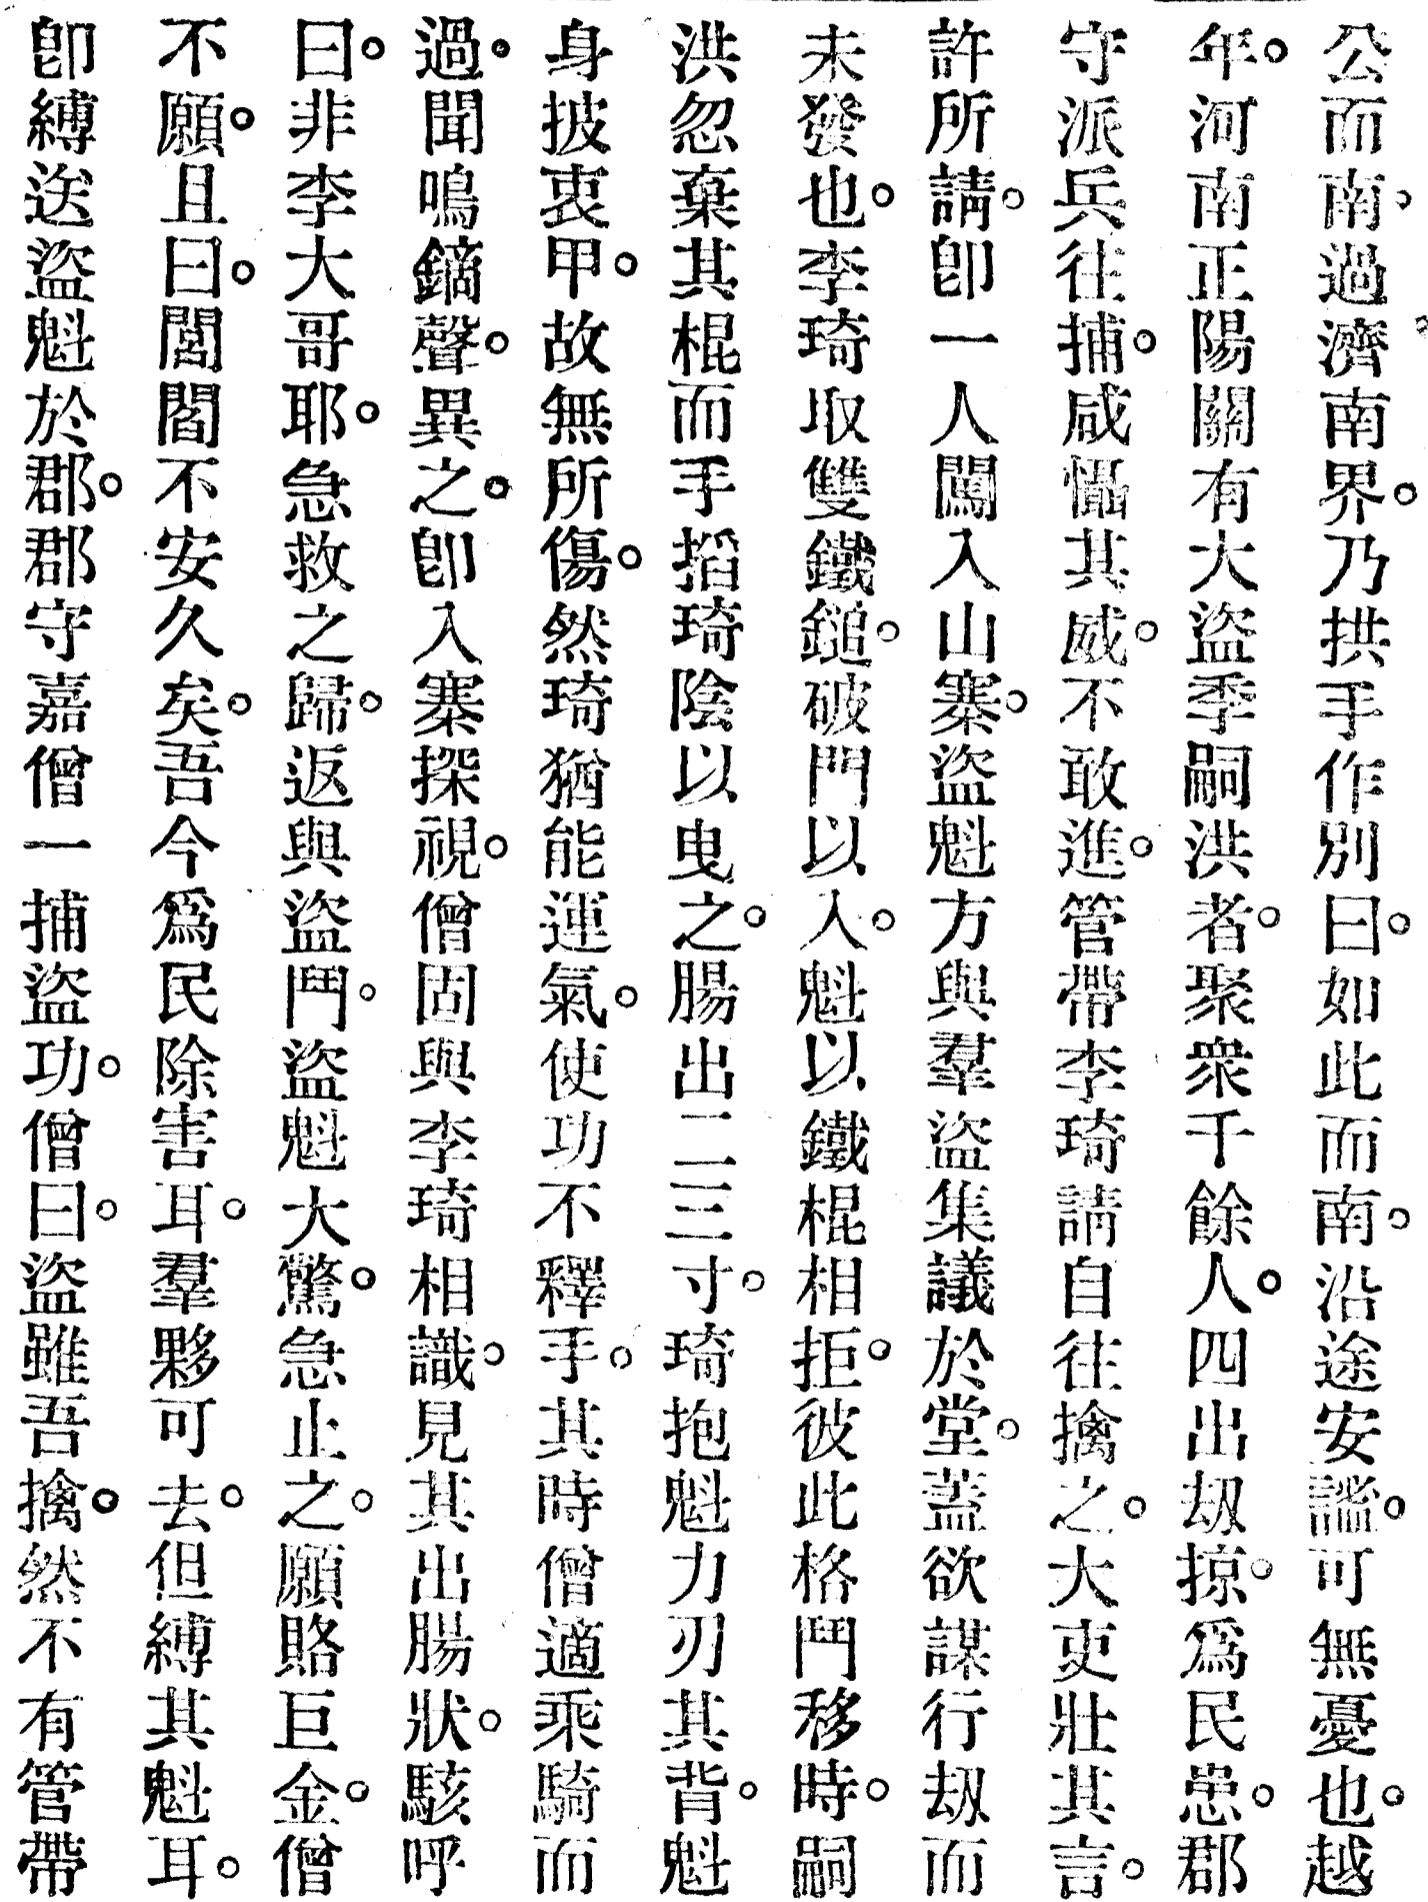 公而南。過濟南界。乃拱手作別曰。如此而南。沿途安謐。可無憂也。越
年。河南正陽關有大盜季嗣洪者。聚衆千餘人。四出刼掠。爲民患。郡
守派兵往捕。咸懾其威。不敢進。管帶李琦請自往擒之。大吏壯其言。
許所請。卽一人闖入山寨。盜魁方與羣盜集議於堂。蓋欲謀行刼而
未發也。李琦取雙鐵鎚。破門以入。魁以鐵棍相拒。彼此格鬥移時。嗣
洪忽棄其棍而手搯琦陰以曳之。腸出二三寸。琦抱魁力刃其背。魁
身披衷甲。故無所傷。然琦猶能運氣。使功不釋手。其時僧適乘騎而
過。聞鳴鏑聲。異之。卽入寨探視。僧固與李琦相識。見其出腸狀。駭呼
曰。非李大哥耶。急救之歸。返與盜鬥。盜魁大驚。急止之。願賂巨金。僧
不願。且曰。閻閻不安久矣。吾今爲民除害耳。羣夥可去。但縛其魁耳。
卽縛送盜魁於郡。郡守嘉僧一捕盜功。僧曰。盜雖吾擒。然不有管帶